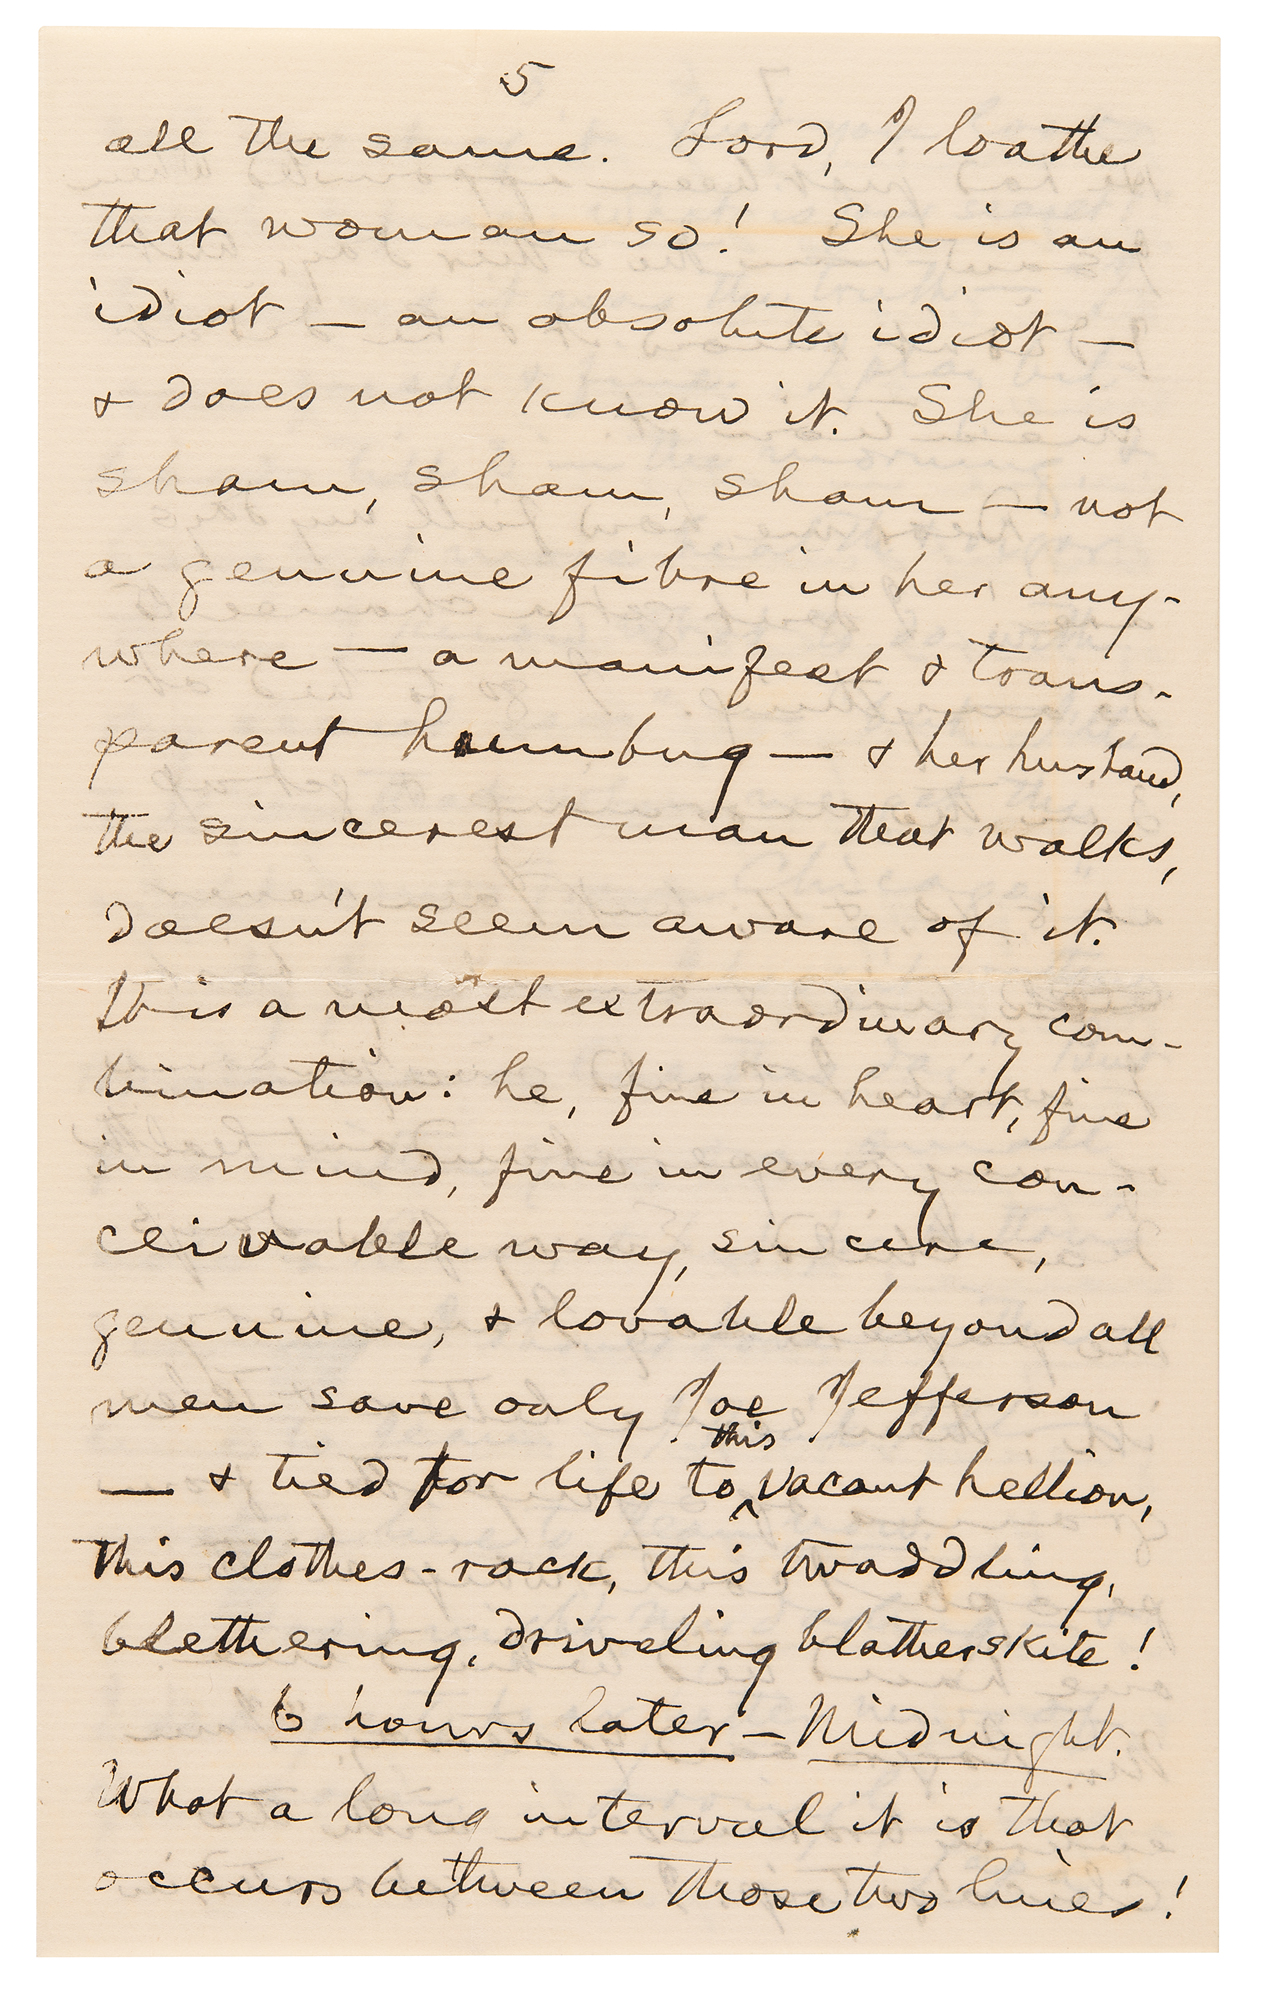 5
all the same. Lord, I loathe
that woman so! She is an
idiot — an absolute idiot —
& does not know it. She is
sham, sham, sham — not
a genuine fibre in her any-
where — a manifest & trans-
parent humbug — & her husband,
the sincerest man that walks,
doesn't seem aware of it.
It is a most extraordinary com-
bination: he, fine in heart, fine
in mind, fine in every con-
ceivable way, sincere,
genuine, & lovable beyond all
men save only Joe Jefferson
this
— & tied for life to ‸ vacant hellion,
this clothes-rack, this twaddling,
blethering, driveling blatherskite!
6 hours later — Midnight.
What a long interval it is that
occurs between those two lines!